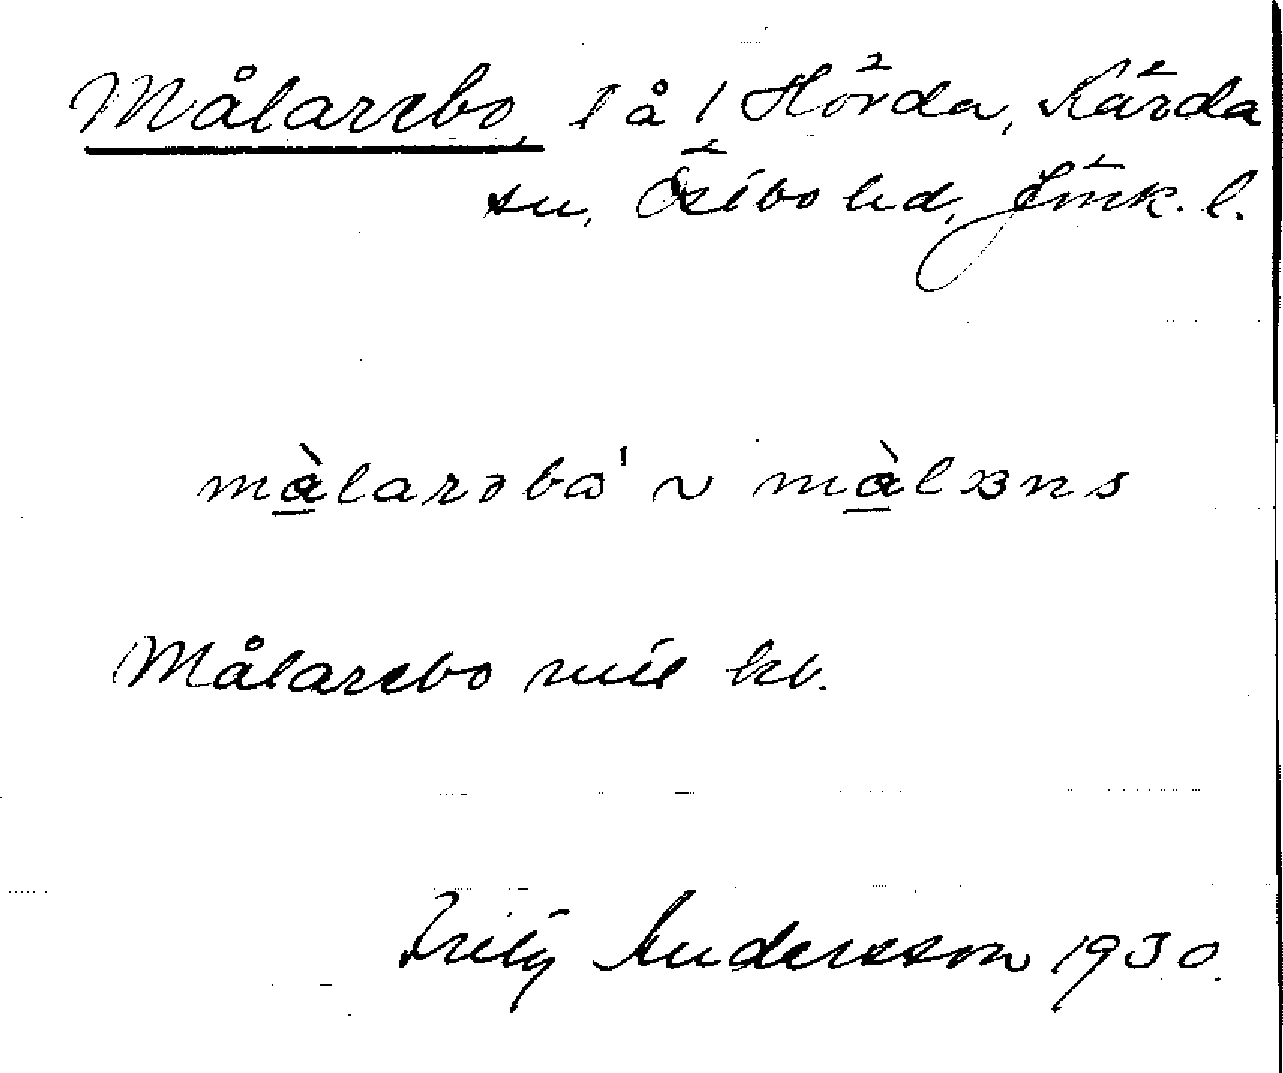 Målarebo, l å 1 Hörda, Kärda
sn, Östbo hd, Jönk. l.
màlarəbo' ~ màlans
Målarebo mil kb.
Fritz Andersson 1930.